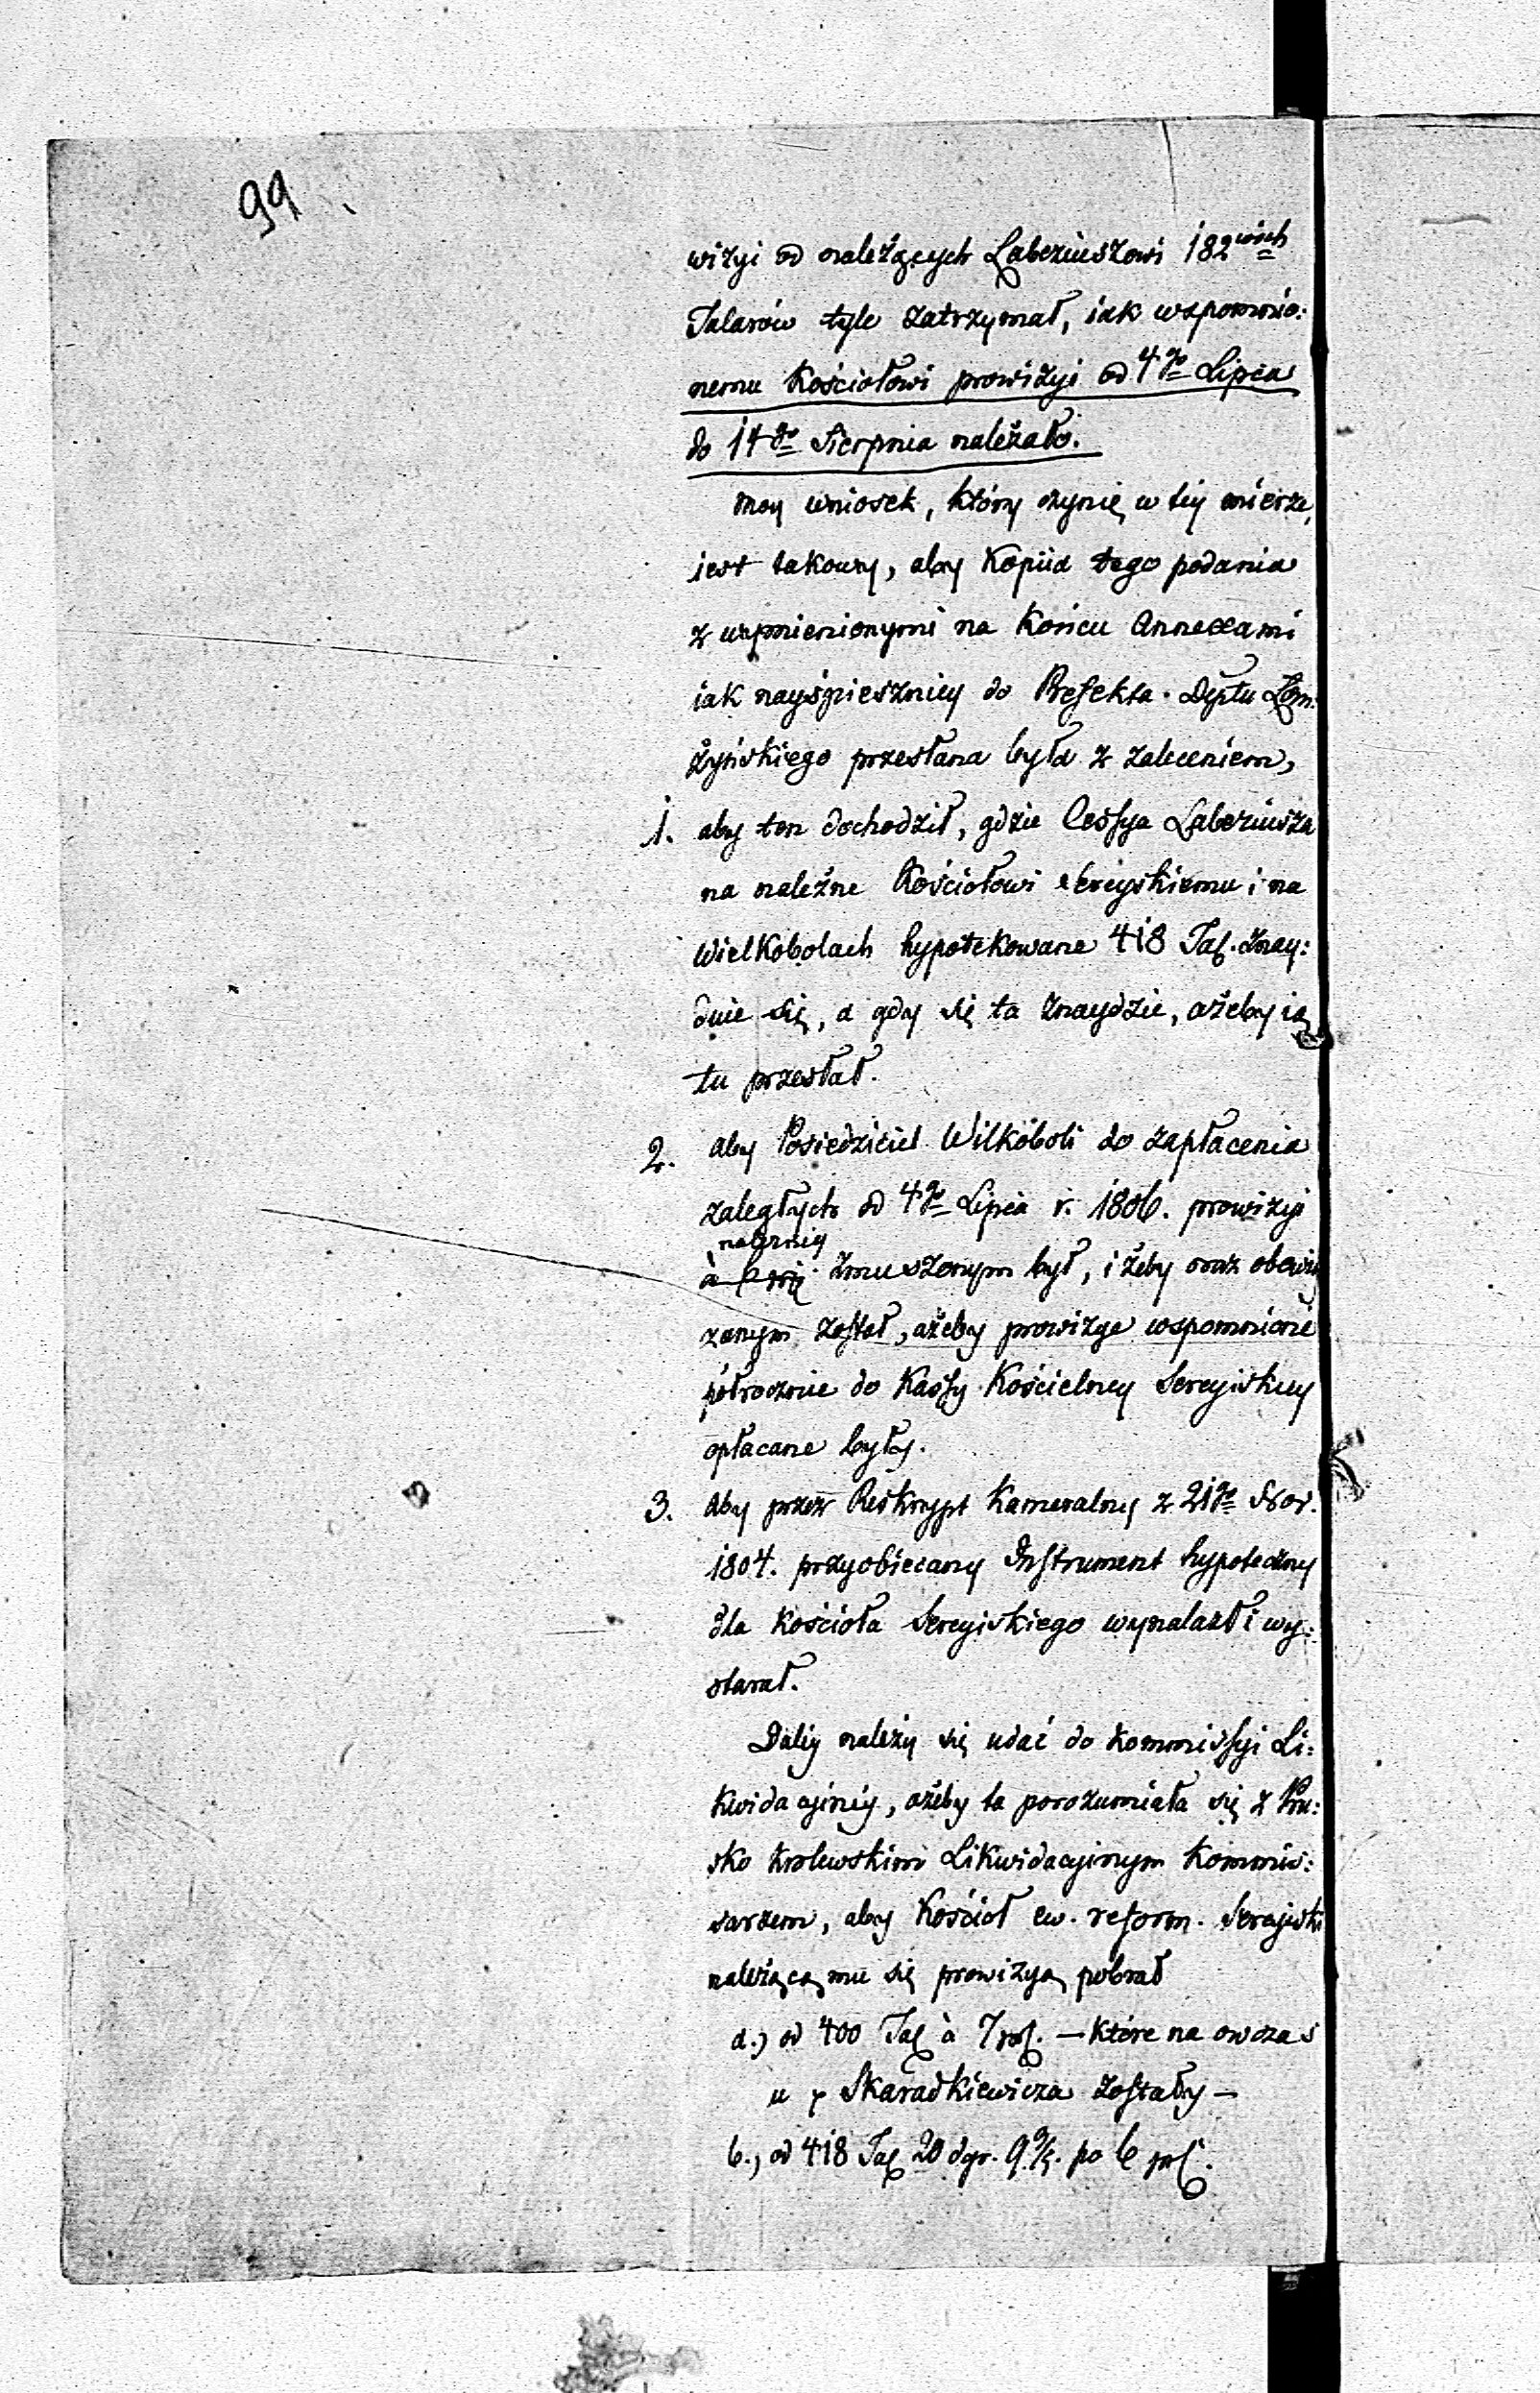 99
wizyi od należących Laberiuszowi 182wóch
Talarów tyle zatrzymał, iak wspomnio:
nemu Kościołowi prowizyi od 4go Lipca
do 14go Sierpnia należało.
Moy wniosek, który czynię w tey mierze,
iest takowy, aby Kopiia tego podania
z wymienionymi na Końcu Annexami
iak nayśpieszniey do Prefekta Dptu Łom:
żyńskiego przesłana była z zaleceniem,
1. aby ten dochodził, gdzie Cessya Laberiusza
na należne Kościołowi Sereyskiemu i na
Wielkobolach hypotekowane 418 Tal. znay:
duie się, a gdy się ta znaydzie, ażeby ią
tu przesłał.
2. aby Posiedziciel Wilkoboli do zapłacenia
zaległych od 4go Lipca r. 1806. prowizyi
zmuszonym był, i żeby oraz obowią
zanym został, ażeby prowizye wspomnione
półrocznie do Kassy Kościelney Sereyiskiey
opłacane były.
3. aby przez Reskrypt Kameralny z 21go Nov.
1804. przyobiecany Instrument hypoteczny
dla Kościoła Sereyiskiego wynalazł i wy:
starał.
Daley należy się udać do Kommissyi Li:
kwidacyiney, ażeby ta porozumiała się z Pru:
sko Krolewskim Likwidacyinym Kommis:
sarzem, aby Kościół ew. reform. Serejski
należącą mu się prowizyą pobrał
a.) od 400 Tal à 7 pC. — które na owczas
u Skaradkiewicza zostały —
b.) od 418 Tal 20 dgr. po 6 pC.